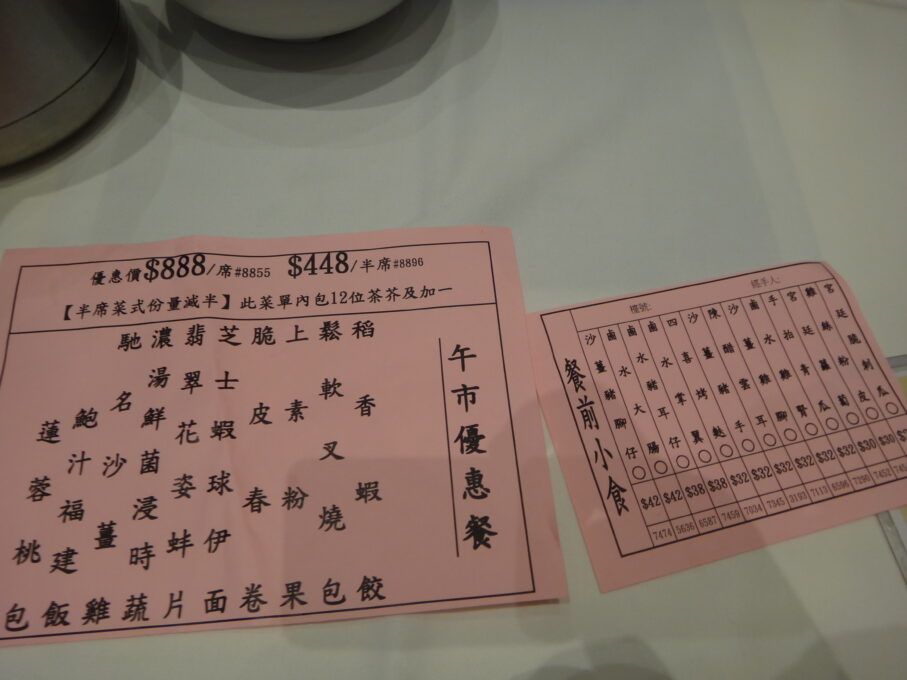 優惠價$888/席#8855 $448/半席#8896
【半席菜式份量減半】此菜單內包12位茶芥及加一
午市優惠餐
稻香蝦餃
鬆軟叉燒包
上素粉果
脆皮春卷
芝士蝦球伊面
翡翠花姿蚌片
濃湯鮮菌浸時蔬
馳名沙薑雞
鮑汁福建飯
蓮蓉桃包
檯號: 經手人:
餐前小食
沙薑豬腳仔○ $42 7474
鹵水大腸○ $42 5636
鹵水豬耳仔○ $38 6587
鹵水掌翼○ $38 7459
四喜烤麩○ $32 7034
沙薑豬手○ $32 7345
陳醋雲耳○ $32 3193
沙薑雞腳○ $32 7113
鹵水雞腎○ $32 6596
手拍青瓜○ $32 7290
宮廷蘿蔔○ $30 7452
雞絲粉皮○ $30
宮廷脆刺瓜○